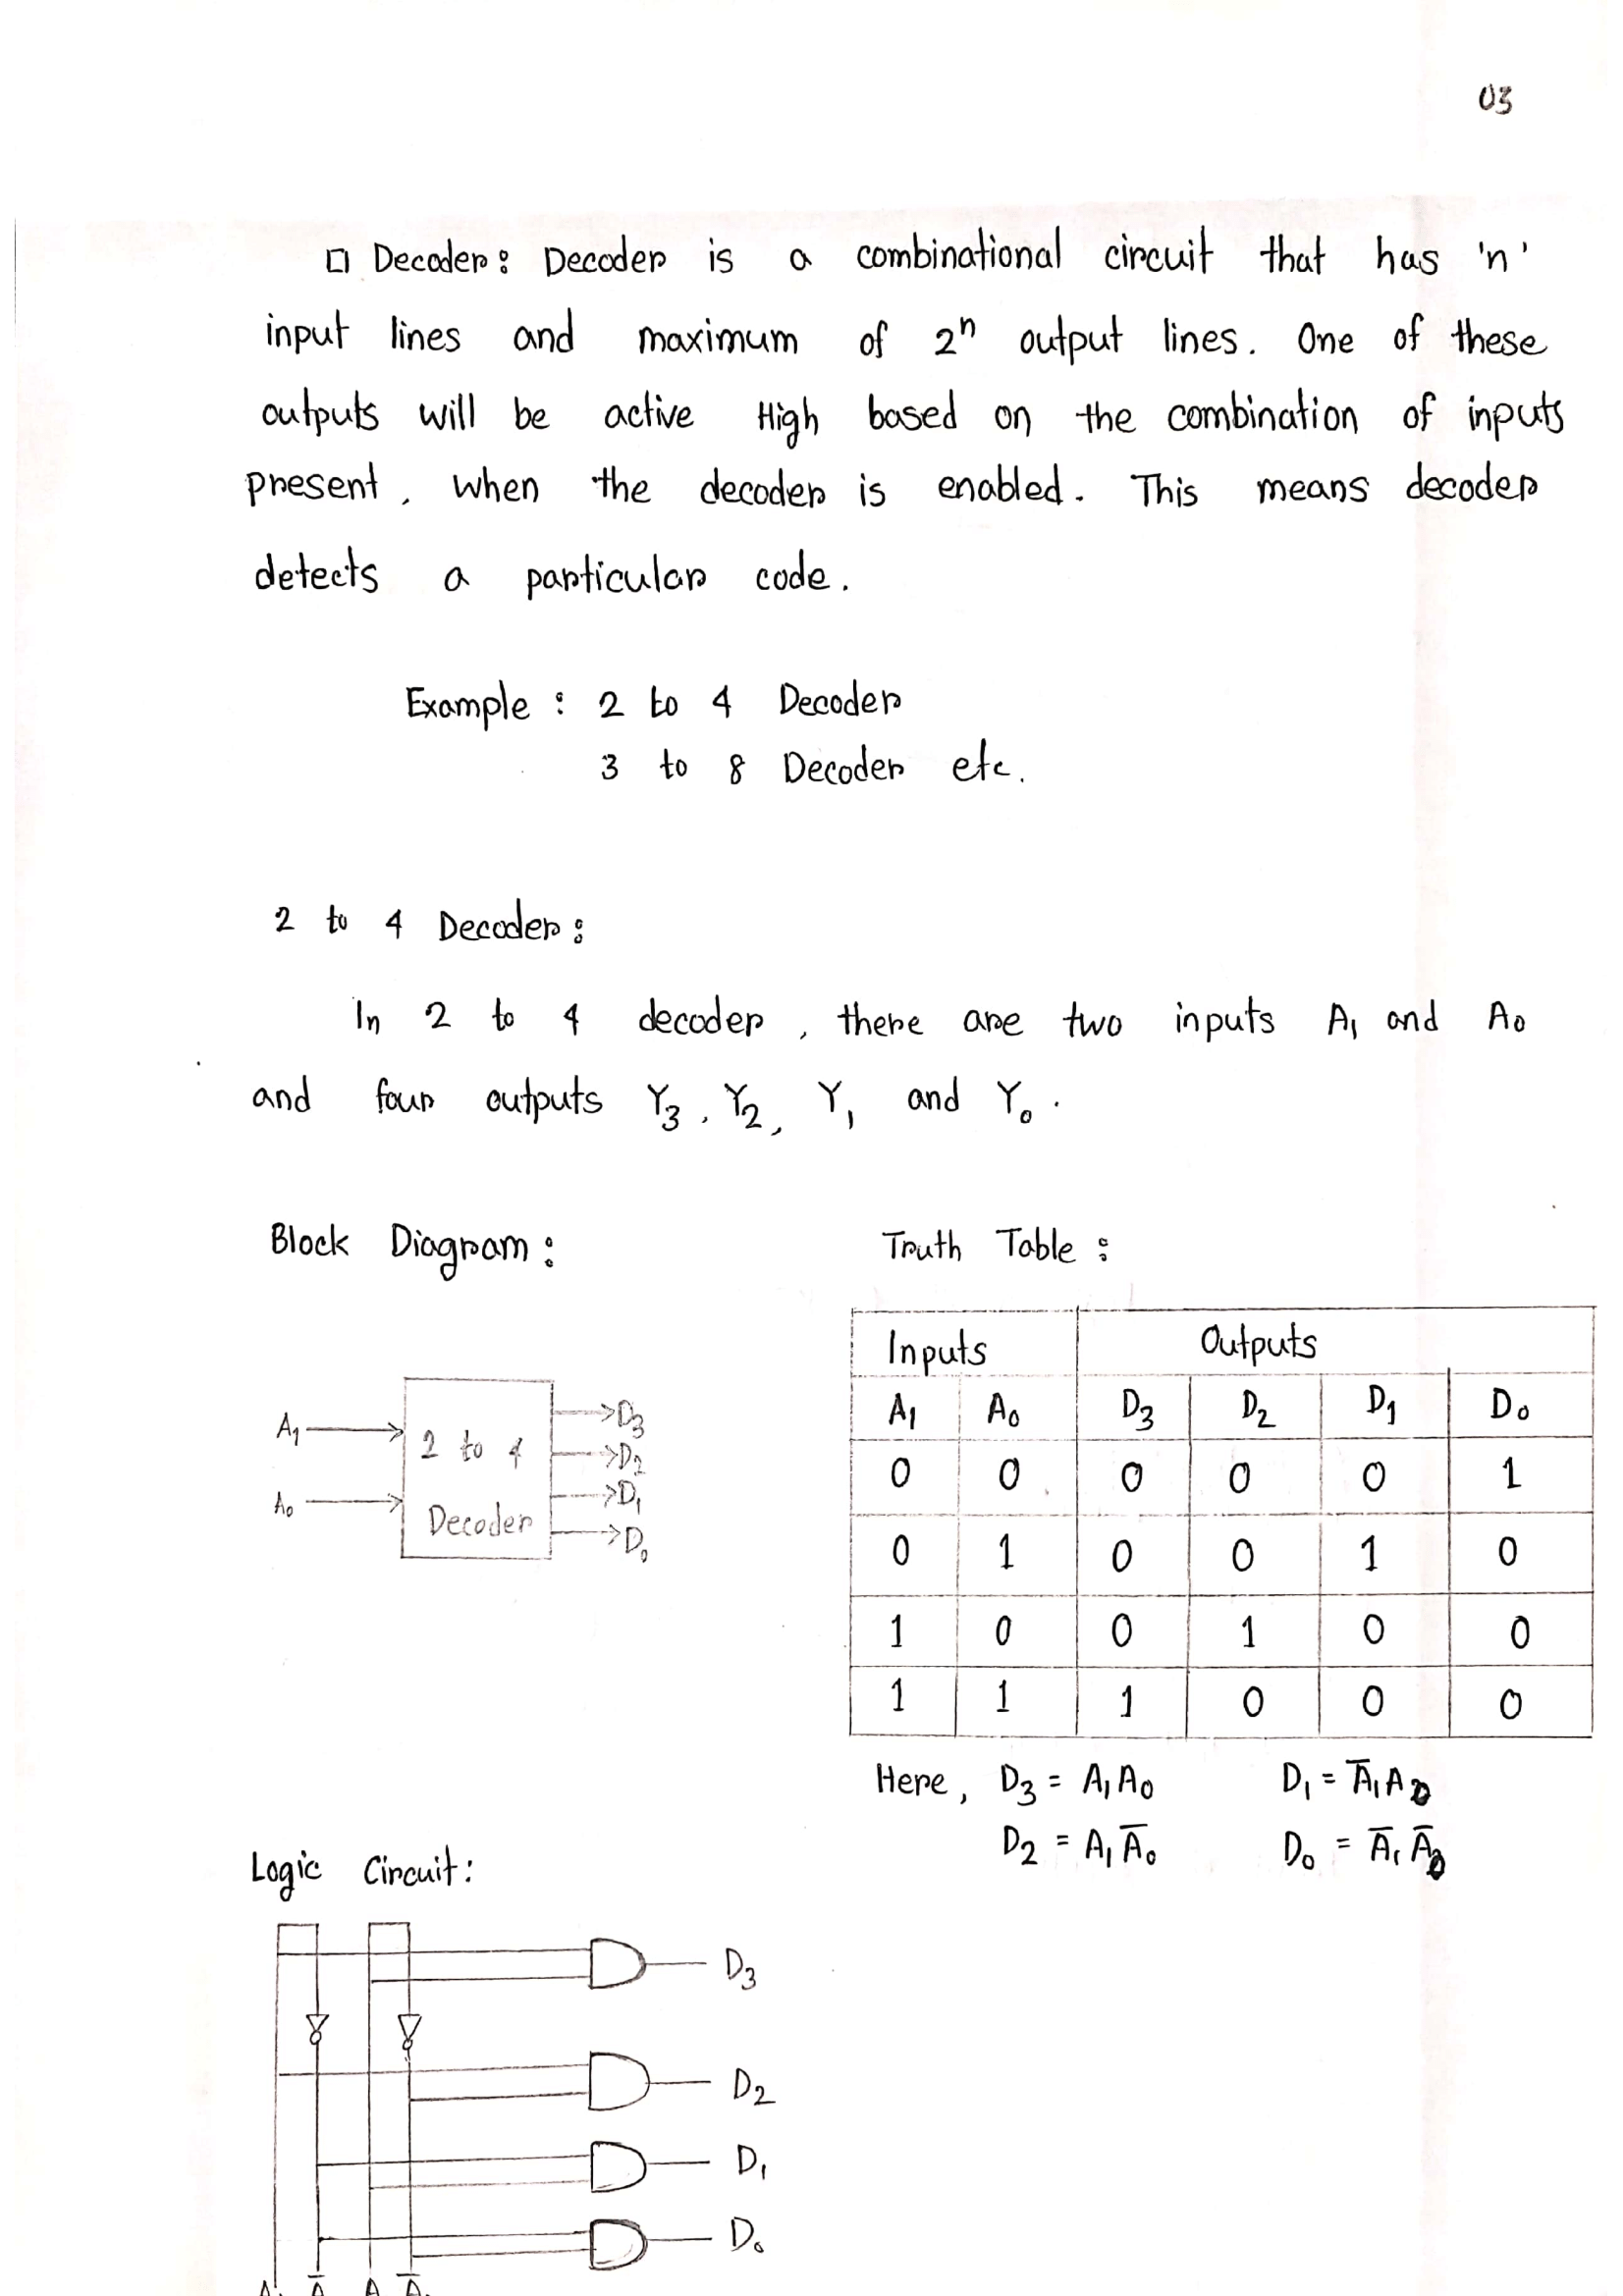 03
□ Decoder: Decoder is a combinational circuit that has 'n'
input lines and maximum of 2ⁿ output lines. One of these
outputs will be active High based on the combination of inputs
present, when the decoder is enabled. This means decoder
detects a particular code.
Example : 2 to 4 Decoder
3 to 8 Decoder etc.
2 to 4 Decoder:
In 2 to 4 decoder, there are two inputs A₁ and A₀
and four outputs Y₃, Y₂, Y₁ and Y₀.
Block Diagram:
A₁
A₀
2 to 4
Decoder
D₃
D₂
D₁
D₀
Truth Table:
Inputs Outputs
A₁ A₀ D₃ D₂ D₁ D₀
0 0 0 0 0 1
0 1 0 0 1 0
1 0 0 1 0 0
1 1 1 0 0 0
Here, D₃ = A₁A₀ D₁ = A̅₁A₀
D₂ = A₁A̅₀ D₀ = A̅₁A̅₀
Logic Circuit:
D₃
D₂
D₁
D₀